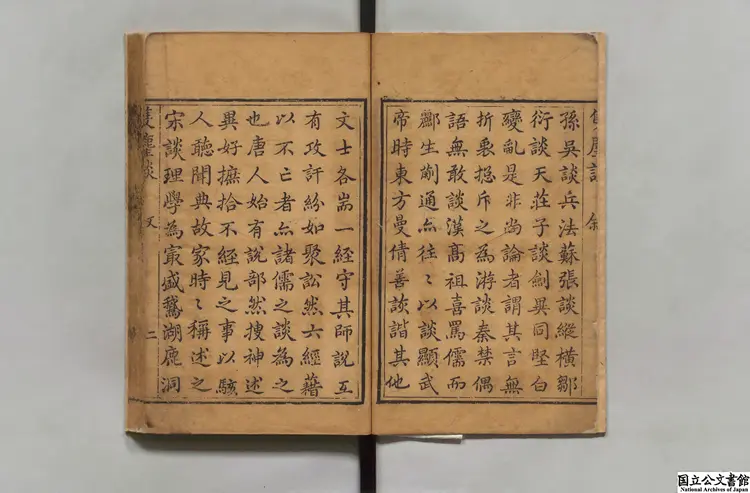 孫吳談兵法蘇張談縱橫鄒
衍談天莊子談劍異同堅白
變亂是非尚論者謂其言無
折衷揔斥之為游談秦禁偶
語無敢談漢高祖喜罵儒而
酈生蒯通亦往〻以談顯武
帝時東方曼倩善詼諧其他
文士各耑一經守其師說互
有攻訐紛如聚訟然六經藉
以不亡者亦諸儒之談為之
也唐人始有說部然搜神述
異好摭拾不經見之事以駭
人聽聞典故家時〻稱述之
宋談理學為冣盛鵝湖鹿洞
雙塵談 二
国立公文書館
National Archives of Japan